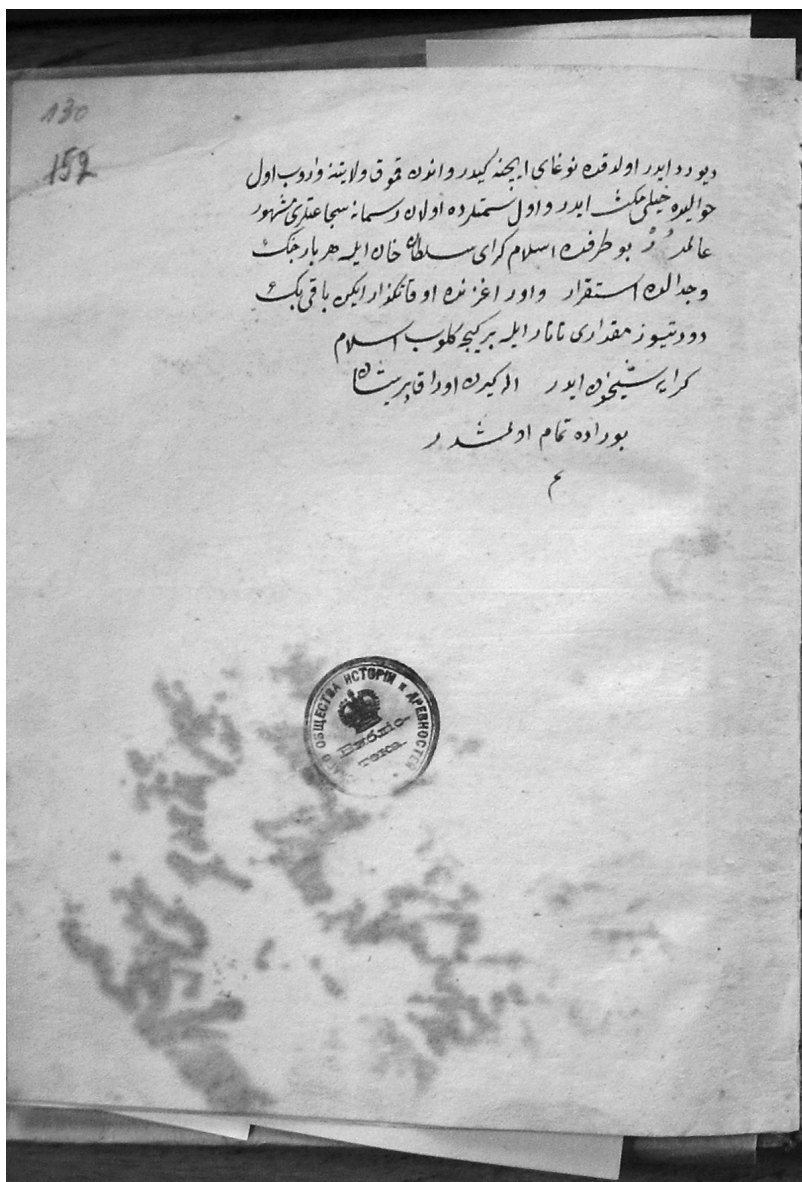 130
152
ديو رد ايدر اولدقده نوغاى ايچنه كيدر واندن قموق ولايتنه واروب اول
حواليده خيلى مكث ايدر و اول سمتلرده اولان رسمانه شجاعتلرى مشهور
عالمدر بو طرفده اسلام كراى سلطان خان ايله هر بار جنك
وجدالده استقرار واور اغزنده اوقاتكذار ايكن باقى بك
دورتيوز مقدارى تاتار ايله بر كيجه كلوب اسلام
كرايه شبيخون ايدر الا كيرن اوراق پريشان
بوراده تمام اولمشدر
م
ОБЩЕСТВА ИСТОРІИ и ДРЕВНОСТЕЙ
Библіо-
тека